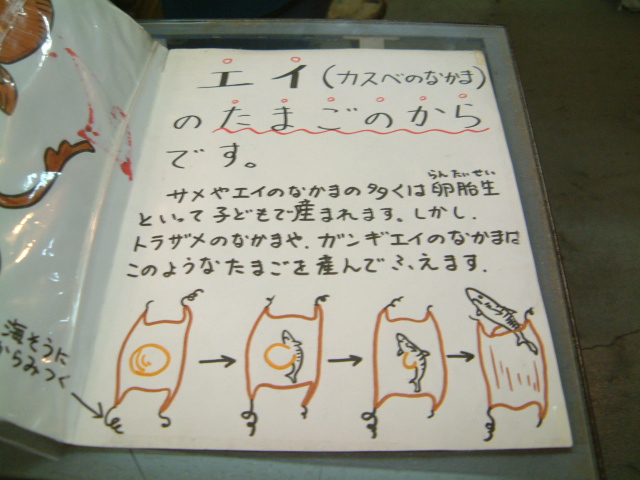 エイ(カスベのなかま)
のたまごのから
です。
らんたいせい
サメやエイのなかまの多くは卵胎生
といって子どもで産まれます。しかし、
トラザメのなかまや、ガンギエイのなかまは
このようなたまごを産んでふえます.
海そうに
からみつく